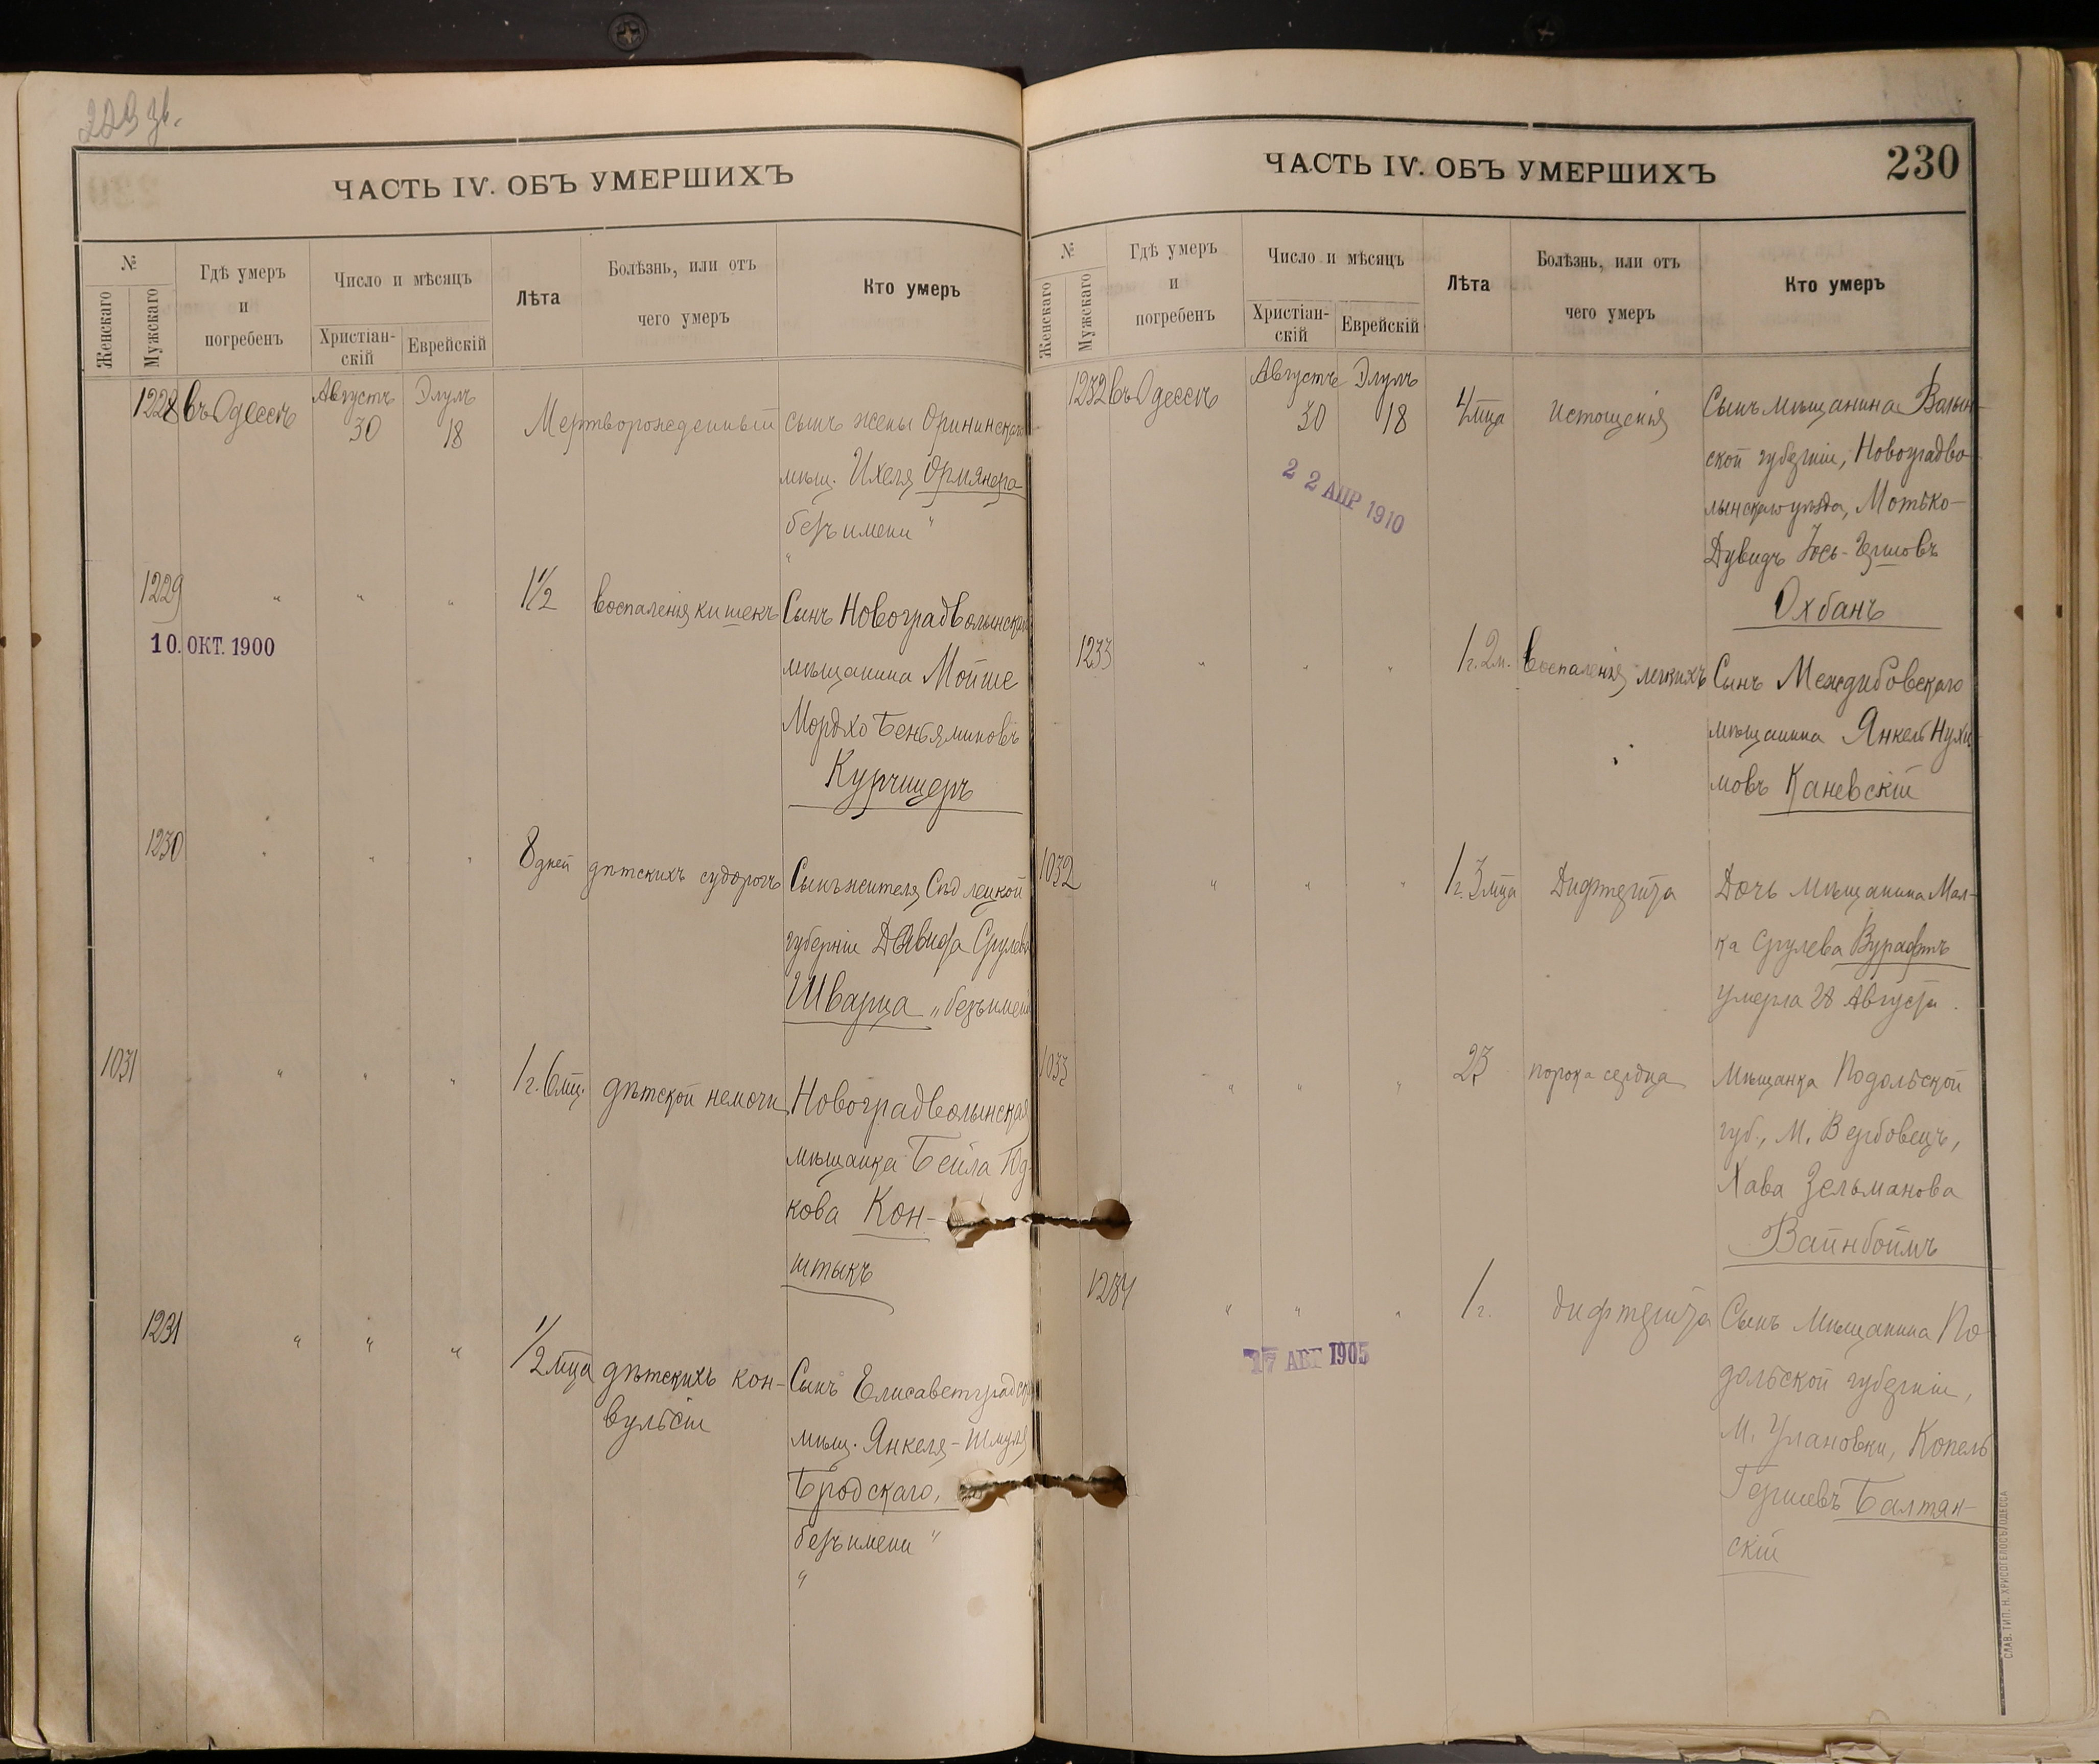 229 зв.
ЧАСТЬ IV. ОБЪ УМЕРШИХЪ
№
Женскаго
Мужскаго
Гдѣ умеръ
и
погребенъ
Число и мѣсяцъ
Христіан-
скій
Еврейскій
Лѣта
Болѣзнь, или отъ
чего умеръ
Кто умеръ
1228 въ Одессѣ Августъ 30 Элулъ 18 Мертворожденный сынъ жены Орининскаго
мѣщ. Ихеля Ормянера
безъ имени "
"
1229 " " " 1 1/2 воспаленія кишекъ Сынъ Новоградволынскаго
10. ОКТ. 1900
мѣщанина Мойше
Мордхо Беньяминовъ
Курчицеръ
1230 " " " 8 дней дѣтскихъ судорогъ Сынъ жителя Сѣдлецкой
губерніи Давида Срулева
Шварца „безъ имени
1031 " " " 1 г. 6 мц. дѣтской немочи Новоградволынская
мѣщанка Бейла Юд-
кова Кон-
штыкъ
1231 " " " 1/2 мца дѣтскихъ кон- Сынъ Елисаветградск
вульсіи
мѣщ. Янкеля-Шмуля
Бродскаго,
безъ имени "
"
ЧАСТЬ IV. ОБЪ УМЕРШИХЪ
230
№
Женскаго
Мужскаго
Гдѣ умеръ
и
погребенъ
Число и мѣсяцъ
Христіан-
скій
Еврейскій
Лѣта
Болѣзнь, или отъ
чего умеръ
Кто умеръ
1232 въ Одессѣ Августъ 30 Элулъ 18 4 мца истощенія Сынъ мѣщанина Волын-
ской губерніи, Новоградво-
22 АПР 1910
лынскаго уѣзда, Мотько-
Дувидъ Іось-Гершовъ
Охбанъ
1233 " " " 1 г. 2 м. воспаленія легкихъ Сынъ Меджибовскаго
мѣщанина Янкель Нухи-
мовъ Каневскій
1032 " " " 1 г. 3 мца Дифтерита Дочь мѣщанина Мал-
ка Срулева Вурафтъ
умерла 28 Августа.
1033 " " " 23 порока сердца Мѣщанка Подольской
губ., М. Вербовецъ,
Хава Зельманова
Вайнбоймъ
1234 " " " 1 г. дифтерита Сынъ мѣщанина По-
17 АВГ 1905
дольской губерніи,
М. Улановки, Копель
Гершевъ Балтян-
скій
СЛАВ. ТИП. Н. ХРИСОГЕЛОСЪ, ОДЕССА